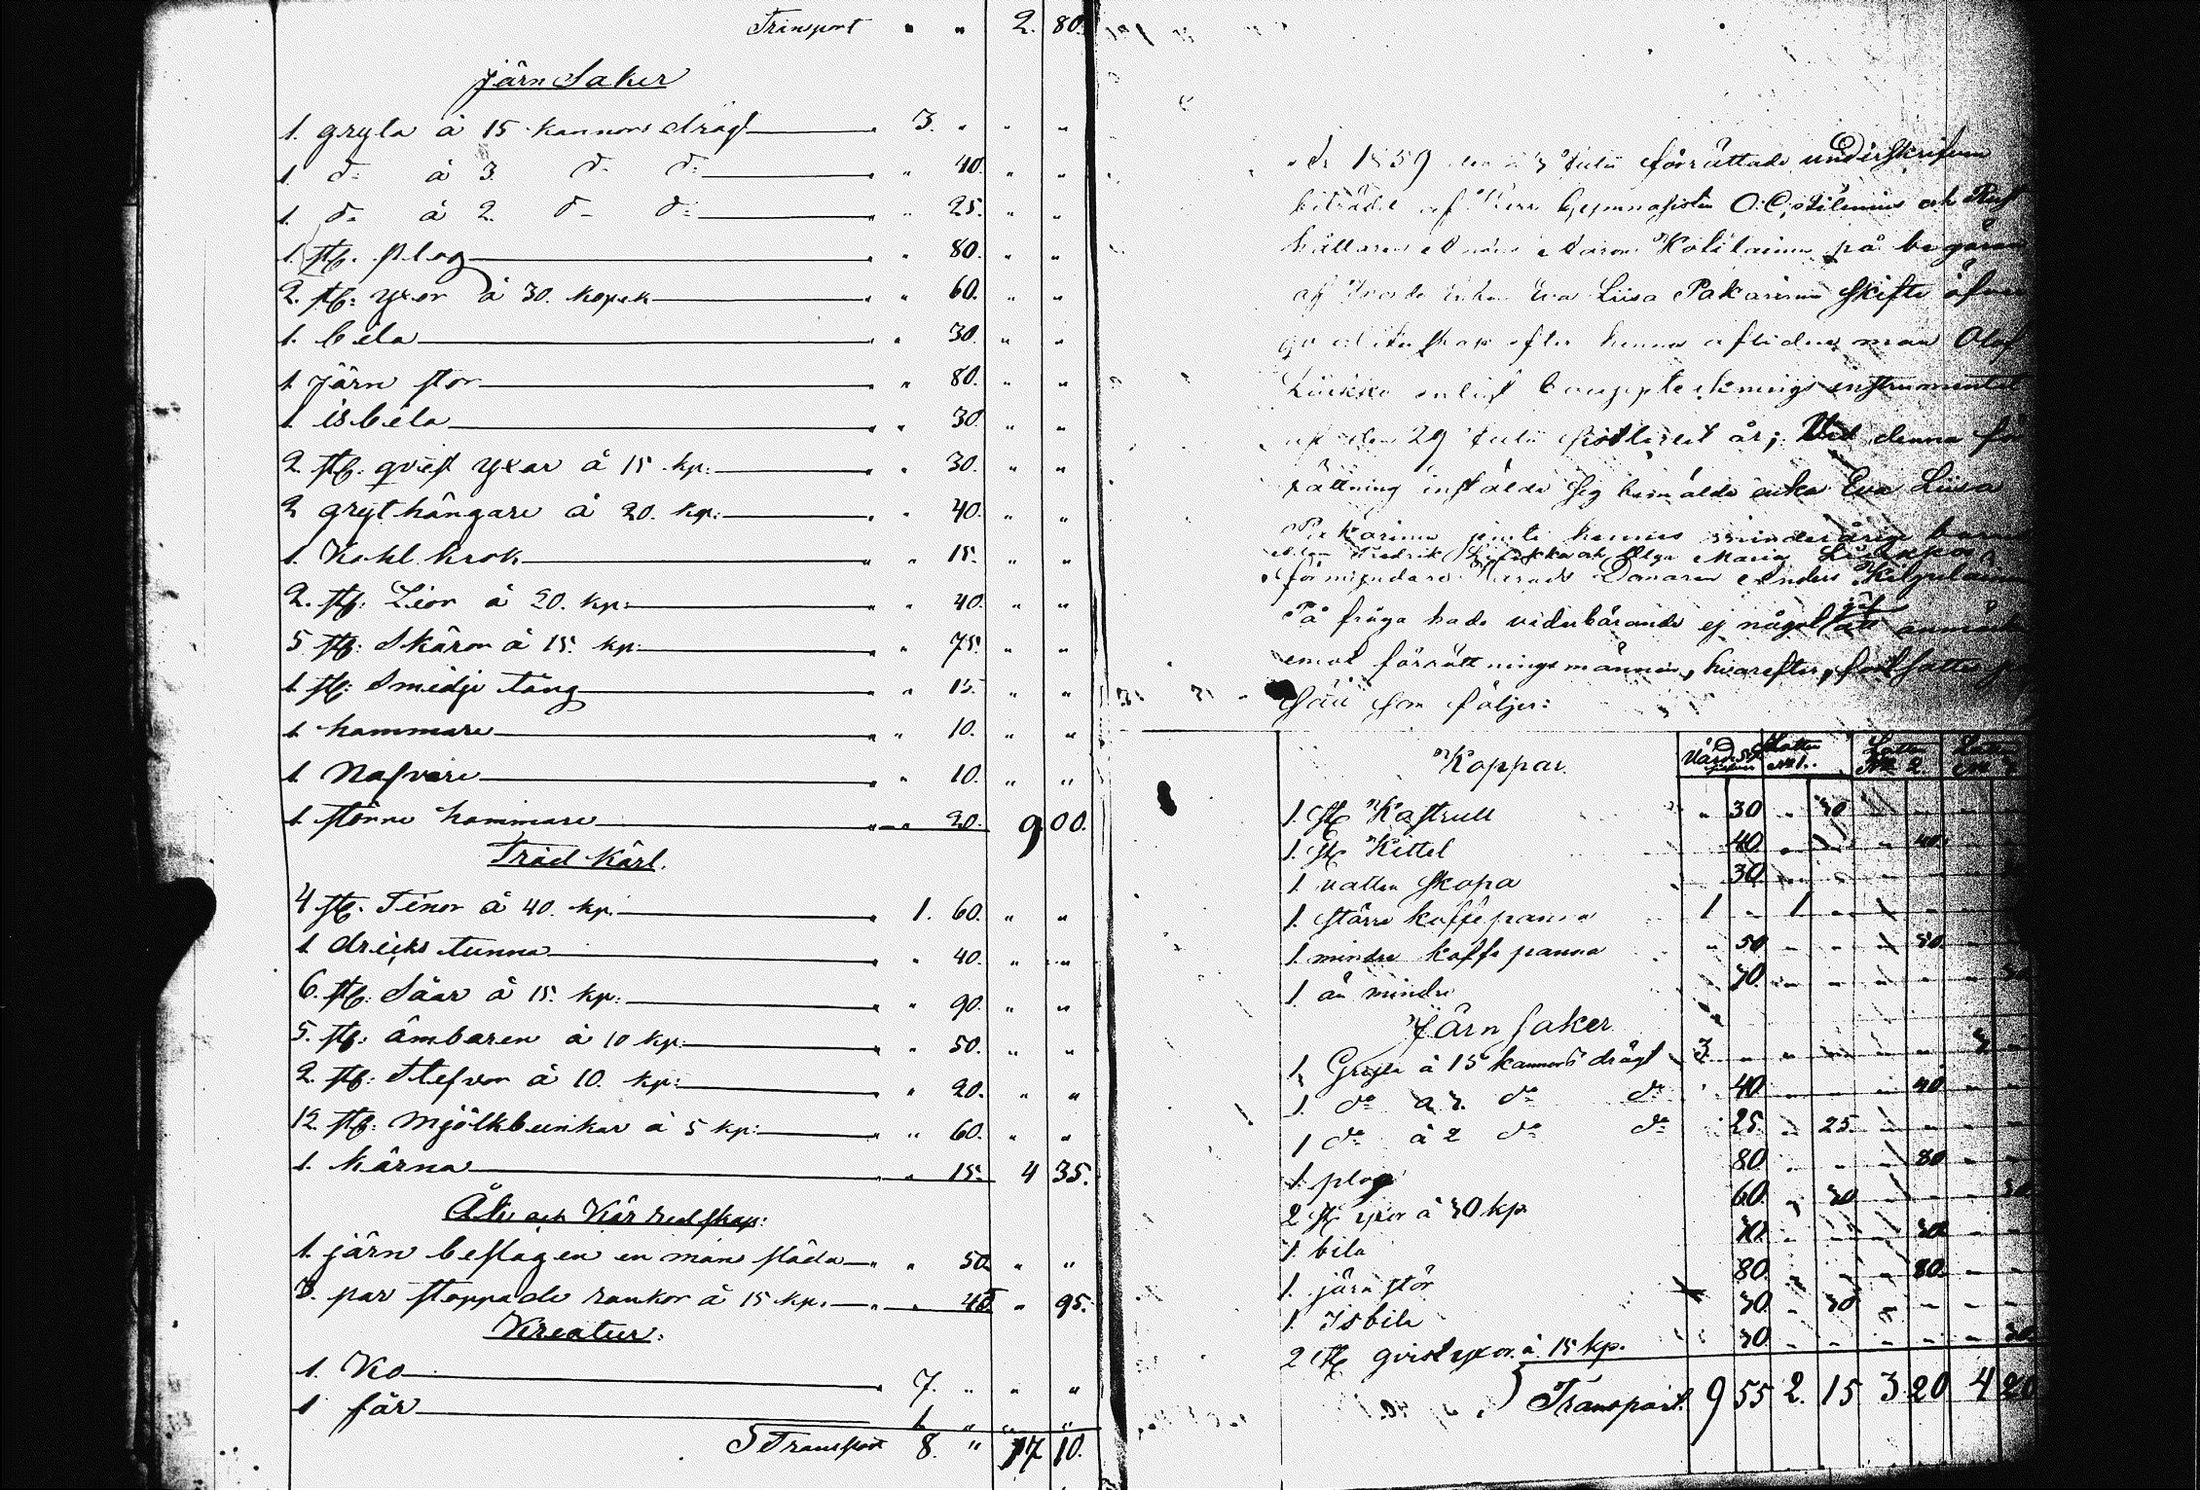 Transport " " 2. 80.
Järn Saker
1. gryta à 15 kannors drägt 3. " " "
1. do à 3. do do " 40. " "
1. do à 2. do do " 25. " "
1. st. plog " 80. " "
2. st: yxor à 30. kopek " 60. " "
1. bila " 30. " "
1 järn stör " 80. " "
1. isbila " 30. " "
2. st: qvist yxor à 15. kp: " 30. " "
2 gryt hängare à 20. kp: " 40. " "
1. Kohl krok " 15. " "
2. st: Lior à 20. kp: " 40. " "
5 st: Skäror à 15. kp: " 75. " "
1 st: Smidje tång " 15. " "
1 hammare " 10. " "
1 Nafvare " 10. " "
1. större hammare " 20. 9 00.
Träd Kärl.
4 st. Tinor à 40. kp. 1. 60. " "
1 dricks tunna " 40. " "
6. st: Såar à 15. kp: " 90. " "
5. st: ämbaren à 10 kp: " 50. " "
2. st: Stefvor à 10. kp: " 20. " "
12 st: mjölkbunkar à 5 kp: " 60. " "
1. kärna " 15. 4 35.
Åk och Kör redskap:
1. järn beslagen en mans släda " 50 " "
3. par stoppade rankor à 15 kp. " 45 " 95.
Kreatur:
1. Ko 7. " " "
1 får 1 " " "
Transport 8. " 17 10.
1859 den Julii förrättade underskrifven
biträdd af Herr Gymnasisten O. C. och Rust
hållaren på begäran
af enkan Eva Liisa Pakarinen skifte öfver
efter hennes aflidne man Olof
Liukko enligt bouppteknings instrumentet
af den 29 Julii sistlidit år; Vid denna för
rättning instälde sig bemälde enka Eva Liisa
Pakarinen jemte hennes minderåriga barns
Fredrik Liukko och Olga Maria Liukko
förmyndare Härads Domaren Anders
På fråga hade vederbörande ej något att anmärka
emot förrättningsmännen, hvarefter fortsattes
såsom följer:
Koppar. Värde Lotten No 1. Lotten No 2. Lotten No 3
1. st Kastrull " 30 " 30 " " " "
1. st Kittel " 40. " " " 40. "
1. vatten skopa 30
1. större kaffe panna 1 " 1 " " " "
1. mindre kaffe panna " 50 " " " 50. "
1 än mindre 30. " " " " "
Järn saker
1. Gryta à 15 kannors drägt 3. " " " " " 3 "
1. do à 3. do do " 40. " " " 40 "
1 do à 2 do do 25. " 25. " " "
1. plog 80. " " " 80 "
2 st yxor à 30 kp 60. " 30 " " " 30
1. bila 30. " " " 30. "
1. järn stör 80. " " " 80. "
1. Isbila 30 " 30 " " "
2 st qvistyxor à 15 kp. 30. " " " " " 30
Transport. 9 55 2. 15 3. 20 4 20